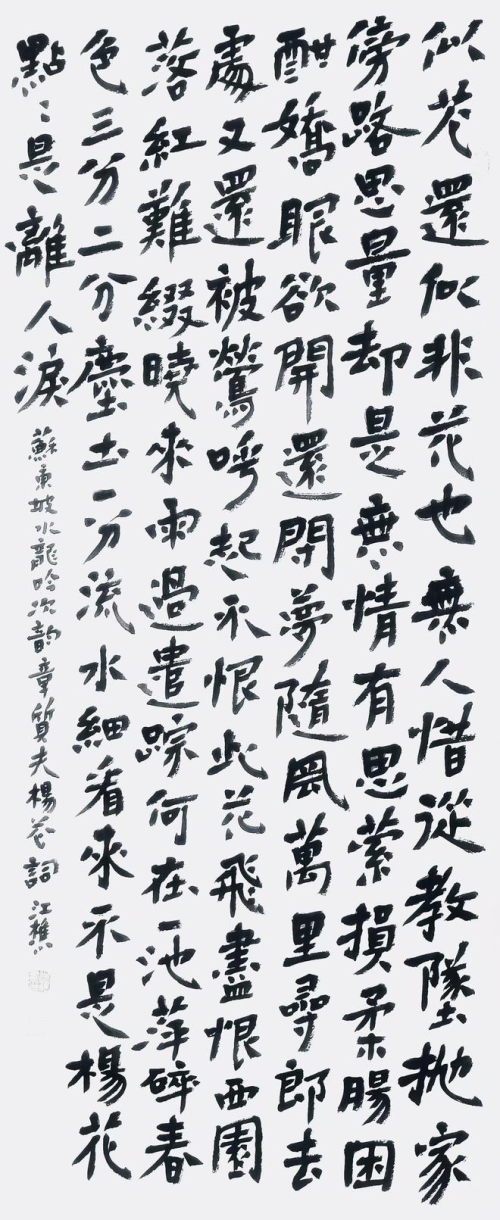 似花還似非花也無人惜從教墜抛家
傍路思量却是無情有思縈損柔腸困
酣嬌眼欲開還閉夢隨風萬里尋郎去
處又還被鶯呼起不恨此花飛盡恨西園
落紅難綴曉來雨過遺踪何在一池萍碎春
色三分二分塵土一分流水細看來不是楊花
點〻是離人淚
蘇東坡水龍吟次韵章質夫楊花詞 江樵